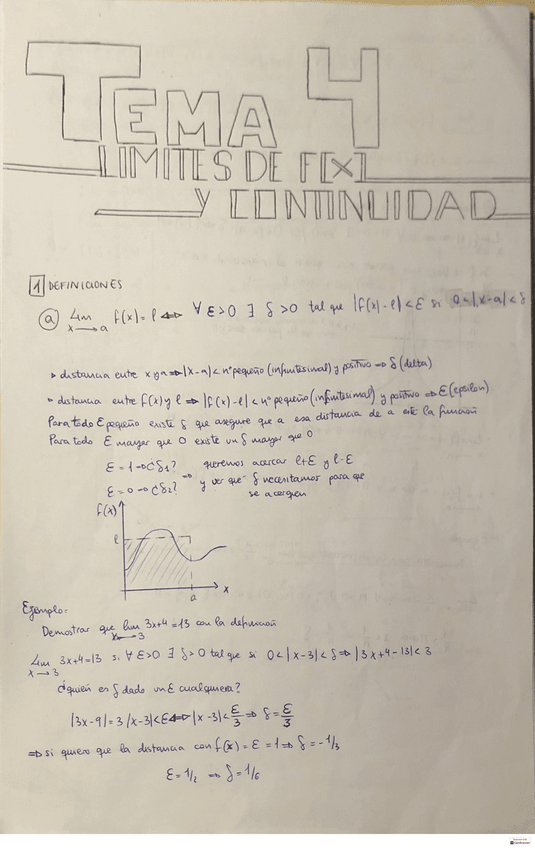 TEMA 4
LIMITES DE F[X]
Y CONTINUIDAD
1 DEFINICIONES
a) Lim x→a f(x) = l ⇔ ∀ ε>0 ∃ δ >0 tal que |f(x)-l| < ε si 0<|x-a| < δ
▸ distancia entre x y a ⇒ |x-a| < nº pequeño (infinitesimal) y positivo ⇒ δ (delta)
▸ distancia entre f(x) y l ⇒ |f(x)-l| < nº pequeño (infinitesimal) y positivo ⇒ ε (epsilon)
Para todo ε pequeño existe δ que asegure que a esa distancia de a este la función
Para todo ε mayor que 0 existe un δ mayor que 0
ε = 1 → ¿δ₁? queremos acercar l+ε y l-ε
ε = 0 → ¿δ₂? ⇒ y ver que δ necesitamos para que
se acerquen
f(x)
l
x
a
Ejemplo:
Demostrar que lim x→3 3x+4=13 con la definición
Lim x→3 3x+4=13 si ∀ ε>0 ∃ δ>0 tal que si 0<|x-3|<δ ⇒ |3x+4-13|<3
¿quién es δ dado un ε cualquiera?
|3x-9|=3|x-3|<ε ⇔ |x-3|<ε/3 ⇒ δ=ε/3
⇒ si quiero que la distancia con f(x)=ε=1 ⇒ δ=-1/3
ε=1/2 ⇒ δ=1/6